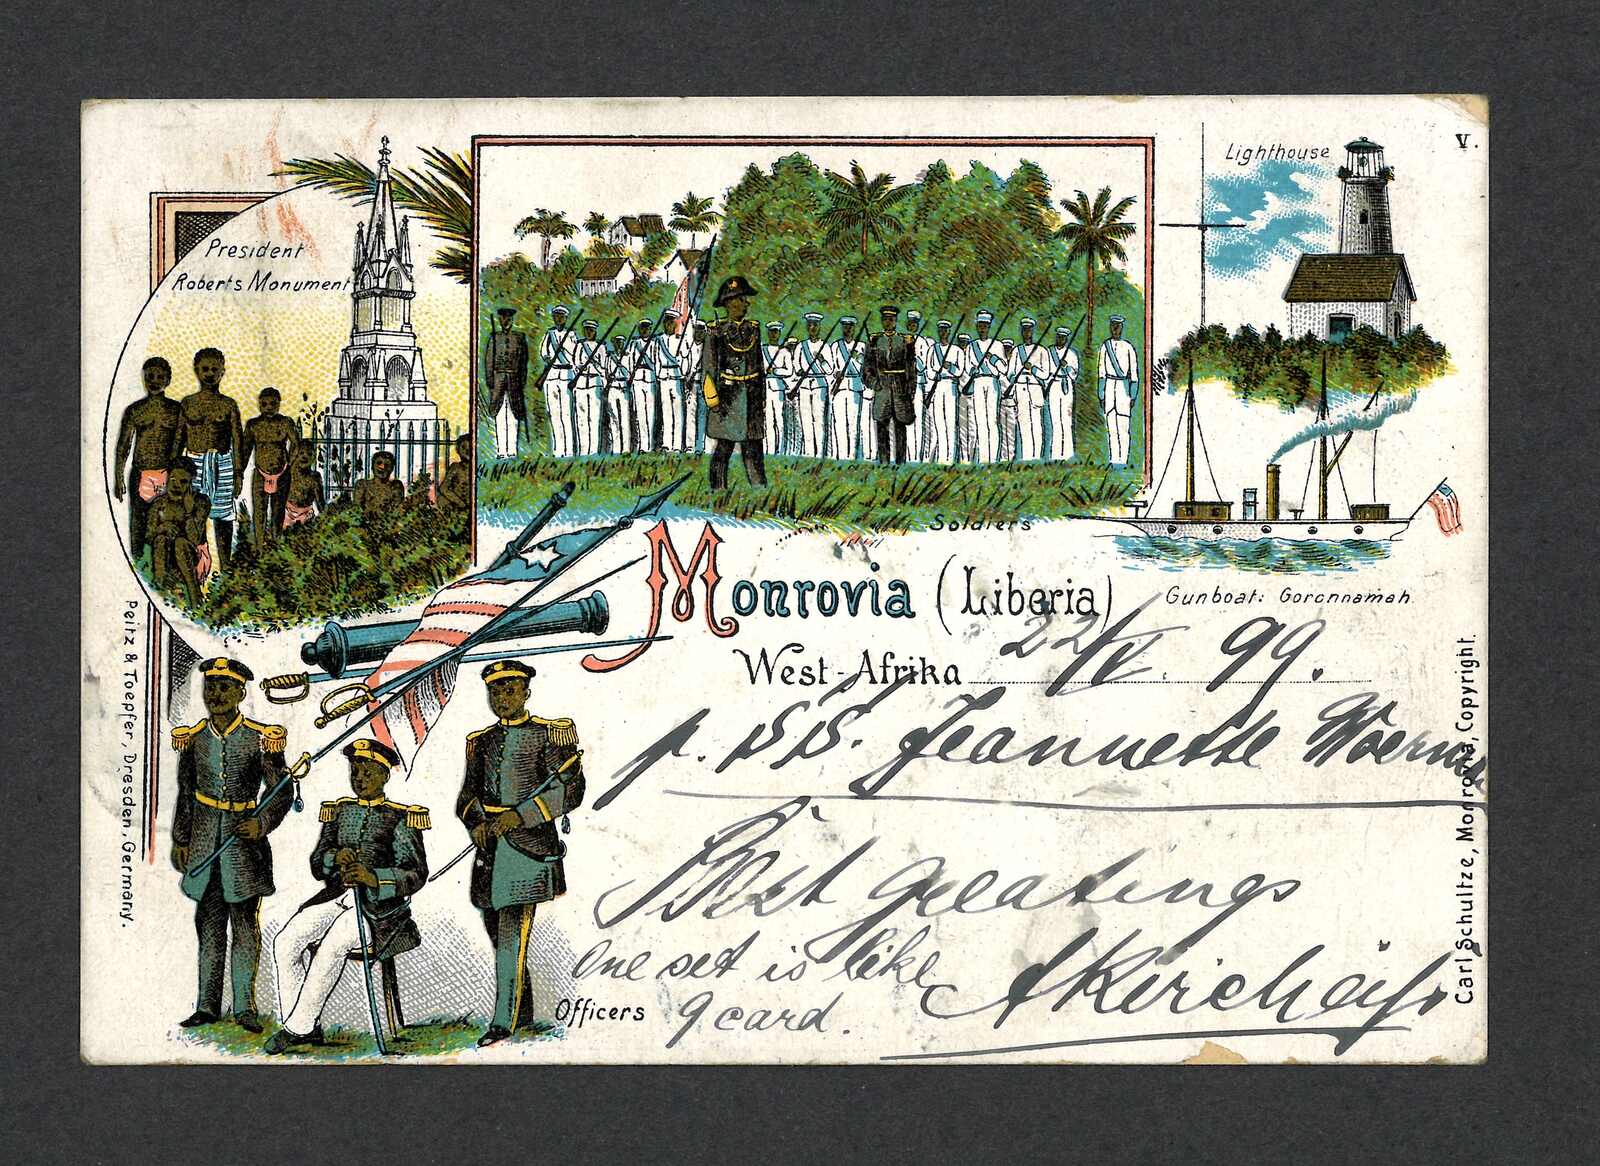 President
Roberts Monument
Lighthouse
V.
Soldiers
Gunboat: Goronnamah.
Monrovia (Liberia)
West-Afrika 22/V. 99.
p. SS. Jeannette Woerm
Best greatings
One set is like
9 card.
Officers
Peitz & Toepfer, Dresden, Germany.
Carl Schultze, Monrovia, Copyright.